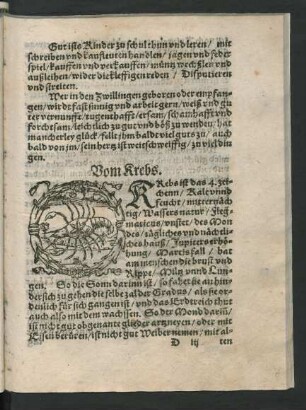 Gut ists Kinder zu schul thun vnd leren / mit
schreiben vnd kaufleuten handlen / jagen vnd feder
spiel / kauffen vnd verkauffen / müntz wechßlen vnd
außleihen / wider die kleffigen reden / Disputieren
vnd streiten.
Wer in den Zwillingen geboren oder empfan
gen / wirdt fast sinnig vnd arbeit gern / weiß vnd gu
ter vernunfft / tugenthafft / ersam / schamhafft vnd
forchtsam / leichtlich zu gut vnd böß zu wenden / hat
mancherley glück / fallt jhm bald er viel guts zu / auch
bald von jm / sein hertz ist weitschweiffig / zu viel din
gen.
Vom Krebs.
KRebs ist das 4. zei-
chenn / Kalt vnnd
feucht / mitternäch
tig / Wassers natur / fleg
maticus / vnstet / des Mon
des / tägliches vnd nächtli
ches hauß / Jupiters erhö
hung / Martis fall / hat
am menschen die brust vnd
Rippe / Miltz vnnd Lun-
gen. So die Sonn darinn ist / so fahet sie an hin
der sich zu gehen die selbe zal der Gradus / als sie or-
denlich für sich gangen ist / vnd das Erdtreich thut
auch also mit dem wachsen. So der Mond darinn /
ist nicht gut obgenant glieder artzneyen / oder mit
Eisen berüren / ist nicht gut Weiber nemen / mit al-
D iij ten